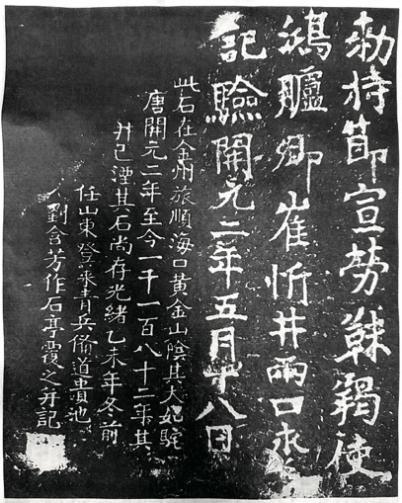 勅持節宣勞靺羯使
鴻臚卿崔忻井兩口永
記驗開元二年五月十八日
此石在金州旅順海口黃金山陰其大如駝
唐開元二年至今一千一百八十二年其
井已湮其石尚存光緒乙未年冬前
任山東登萊青兵備道貴池
劉含芳作石亭覆之并記